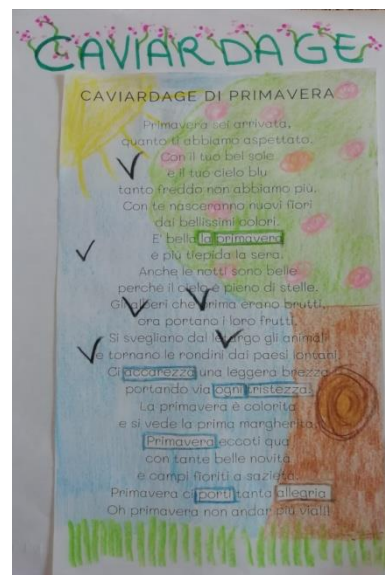 CAVIARDAGE
CAVIARDAGE DI PRIMAVERA
Primavera sei arrivata,
quanto ti abbiamo aspettato.
Con il tuo bel sole
e il tuo cielo blu
tanto freddo non abbiamo più.
Con te nasceranno nuovi fiori
dai bellissimi colori.
E' bella la primavera
e più tiepida la sera.
Anche le notti sono belle
perchè il cielo è pieno di stelle.
Gli alberi che prima erano brutti,
ora portano i loro frutti.
Si svegliano dal letargo gli animali
e tornano le rondini dai paesi lontani.
Ci accarezza una leggera brezza
portando via ogni tristezza.
La primavera è colorita
e si vede la prima margherita.
Primavera eccoti qua
con tante belle novità
e campi fioriti a sazietà.
Primavera ci porti tanta allegria
Oh primavera non andar più via!!!